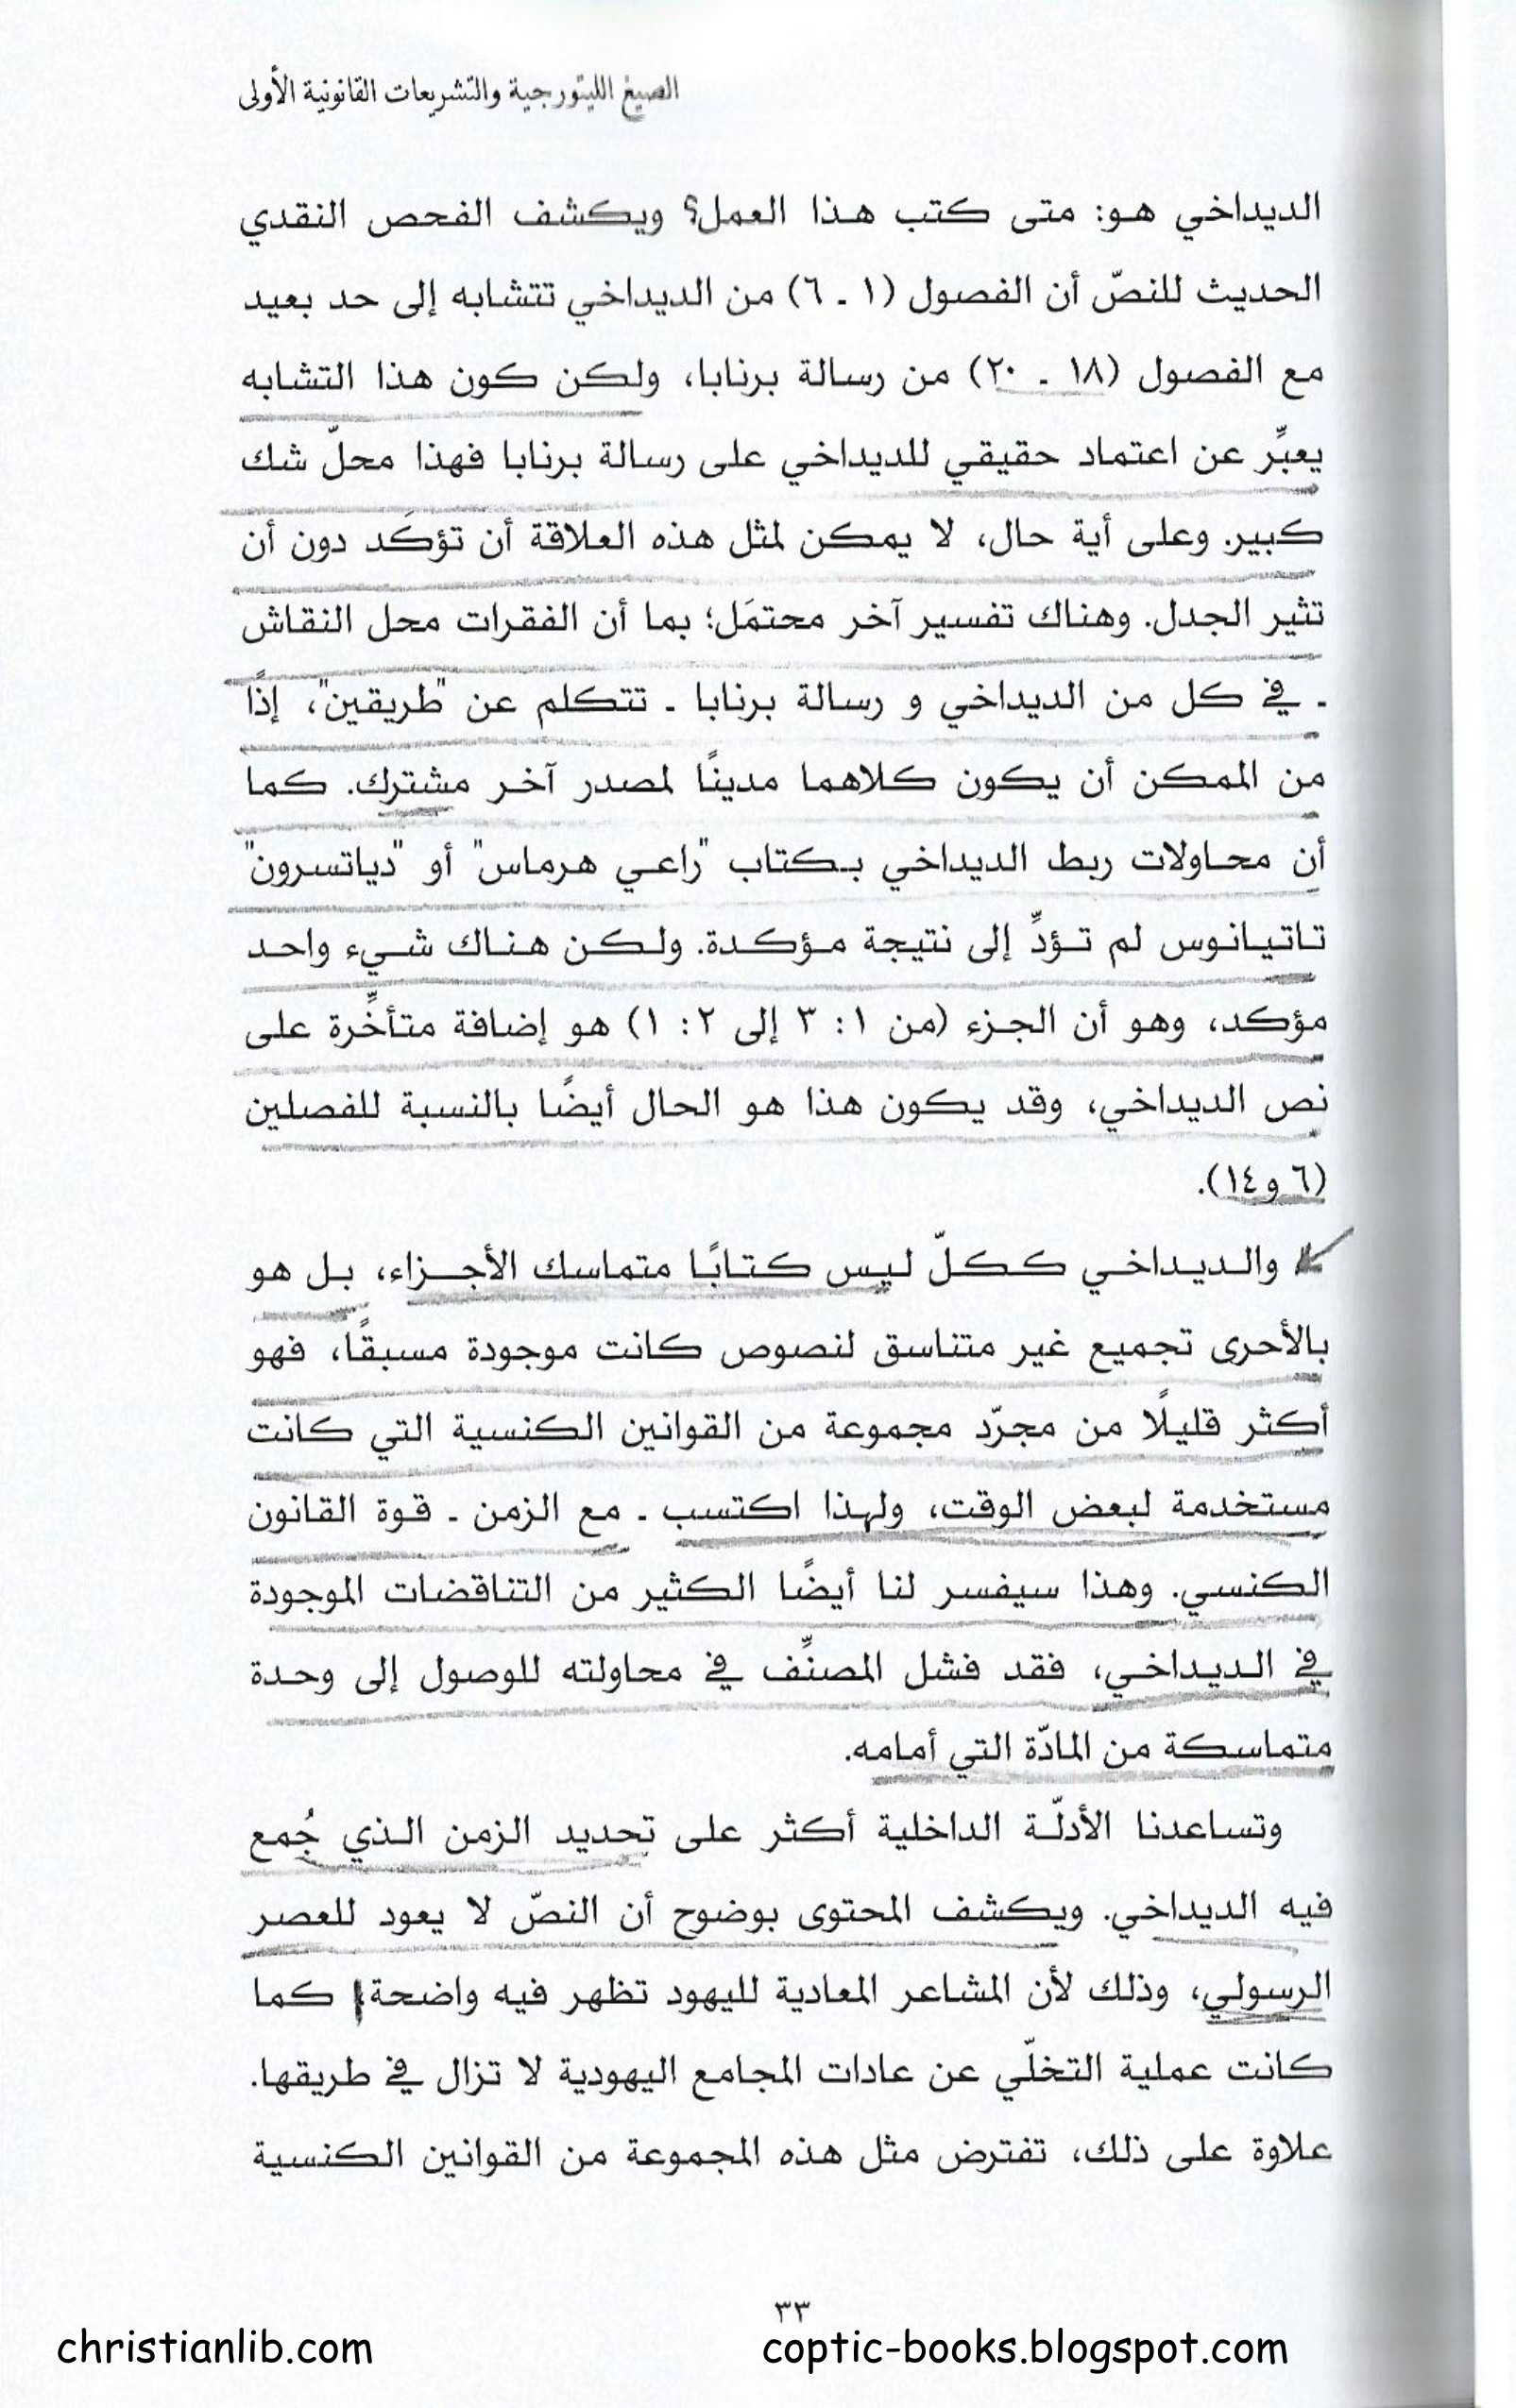 الصيغ الليتورجية والتشريعات القانونية الأولى
الديداخي هو: متى كتب هذا العمل؟ ويكشف الفحص النقدي
الحديث للنصّ أن الفصول (١ ـ ٦) من الديداخي تتشابه إلى حد بعيد
مع الفصول (١٨ ـ ٢٠) من رسالة برنابا، ولكن كون هذا التشابه
يعبِّر عن اعتماد حقيقي للديداخي على رسالة برنابا فهذا محلّ شك
كبير. وعلى أية حال، لا يمكن لمثل هذه العلاقة أن تؤكَد دون أن
تثير الجدل. وهناك تفسير آخر محتمَل؛ بما أن الفقرات محل النقاش
ـ في كل من الديداخي و رسالة برنابا ـ تتكلم عن "طريقين"، إذًا
من الممكن أن يكون كلاهما مدينًا لمصدر آخر مشترك. كما
أن محاولات ربط الديداخي بكتاب "راعي هرماس" أو "دياتسرون"
تاتيانوس لم تؤدِّ إلى نتيجة مؤكدة. ولكن هناك شيء واحد
مؤكد، وهو أن الجزء (من ١: ٣ إلى ٢: ١) هو إضافة متأخِّرة على
نص الديداخي، وقد يكون هذا هو الحال أيضًا بالنسبة للفصلين
(٦ و١٤).
والديداخي ككلّ ليس كتابًا متماسك الأجزاء، بل هو
بالأحرى تجميع غير متناسق لنصوص كانت موجودة مسبقًا، فهو
أكثر قليلًا من مجرّد مجموعة من القوانين الكنسية التي كانت
مستخدمة لبعض الوقت، ولهذا اكتسب ـ مع الزمن ـ قوة القانون
الكنسي. وهذا سيفسر لنا أيضًا الكثير من التناقضات الموجودة
في الديداخي، فقد فشل المصنِّف في محاولته للوصول إلى وحدة
متماسكة من المادّة التي أمامه.
وتساعدنا الأدلّة الداخلية أكثر على تحديد الزمن الذي جُمع
فيه الديداخي. ويكشف المحتوى بوضوح أن النصّ لا يعود للعصر
الرسولي، وذلك لأن المشاعر المعادية لليهود تظهر فيه واضحة، كما
كانت عملية التخلّي عن عادات المجامع اليهودية لا تزال في طريقها.
علاوة على ذلك، تفترض مثل هذه المجموعة من القوانين الكنسية
٣٣
christianlib.com
coptic-books.blogspot.com